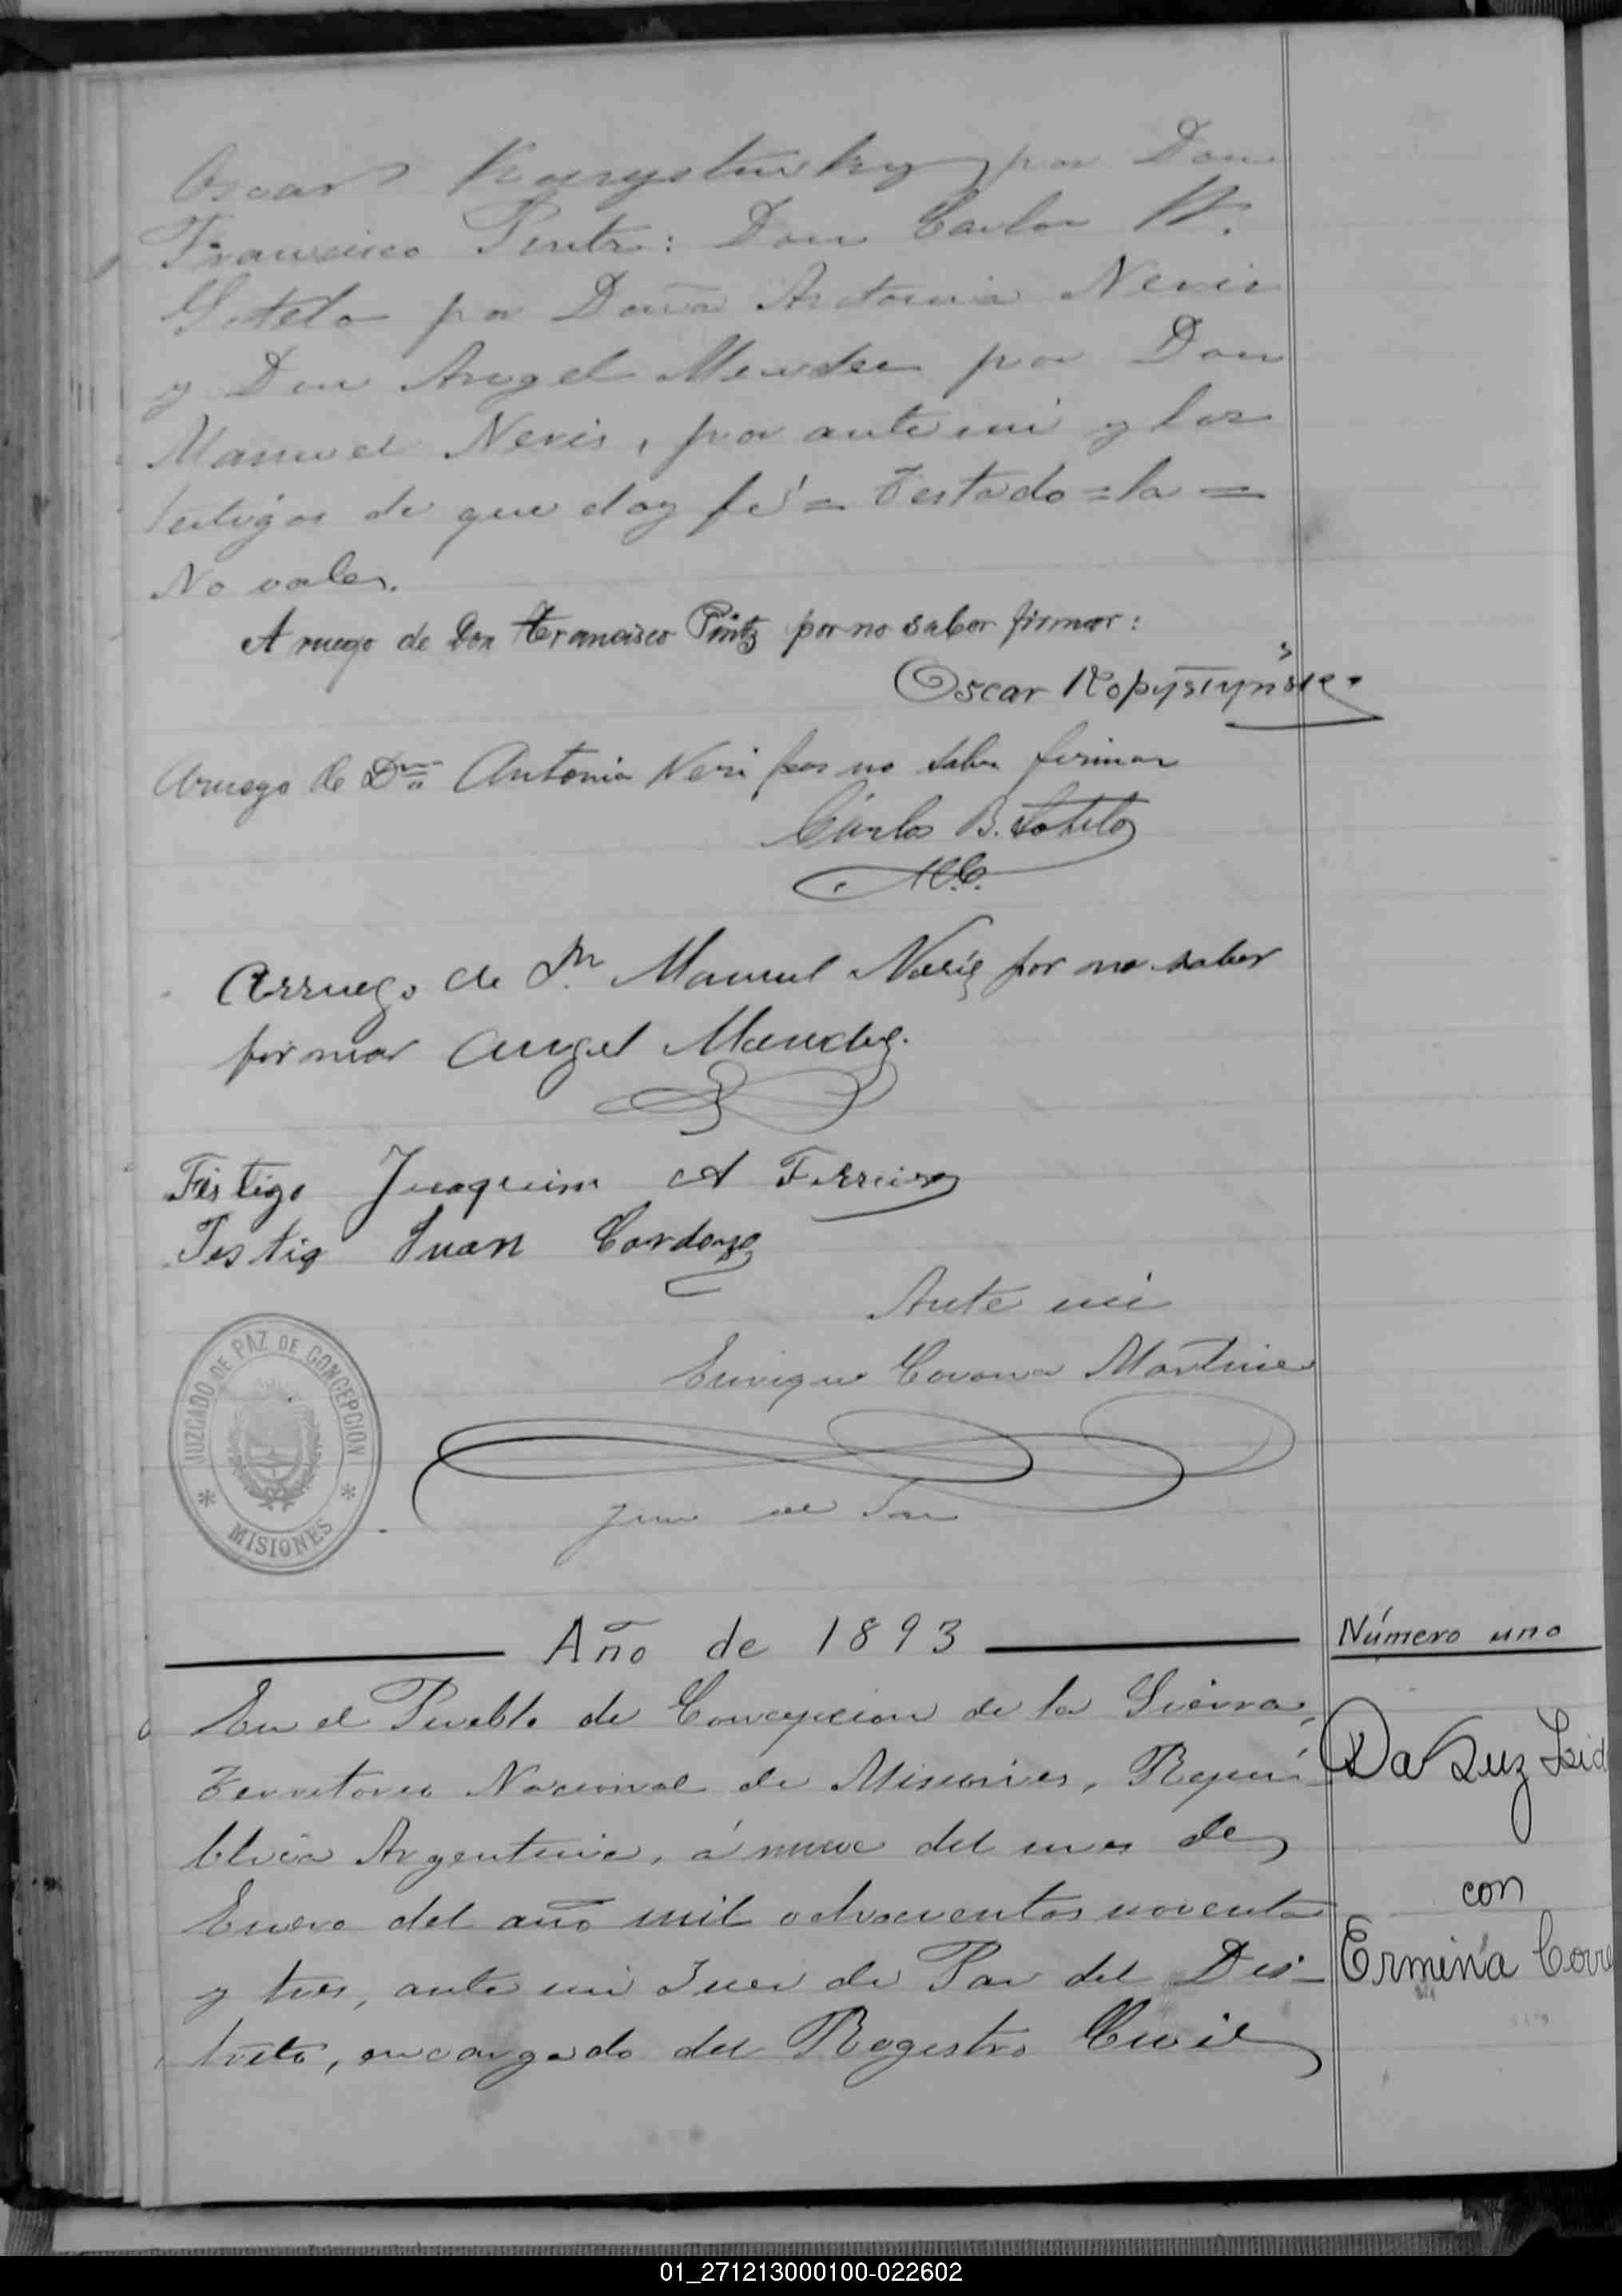 Oscar Kopystinsky por Don
Francisco Pintz: Don Carlos B.
Sotelo por Doña Antonia Neris
y Don Angel Mendez por Don
Manuel Neris, por ante mi y los
testigos de que doy fé = Testado = la =
No vale.
A ruego de Don Francisco Pintz por no saber firmar:
Oscar Kopystynski
Aruego de Dña Antonia Neri por no saber firmar
Carlos B. Sotelo
Arruego de Dn Manuel Neris por no saber
firmar Angel Mendez.
Testigo Juaquim A Ferreira
Testigo Juan Cardozo
Ante mi
Enrique Corona Martinez
Juez de Paz
JUZGADO DE PAZ DE CONCEPCION
* MISIONES *
Año de 1893
Número uno
En el Pueblo de Concepcion de la Sierra,
Territorio Nacional de Misiones, Repú-
blica Argentina, á nueve del mes de
Enero del año mil ochocientos noventa
y tres, ante mi Juez de Paz del Dis-
trito, encargado del Registro Civil
Da Luz
con
Ermina
01_271213000100-022602